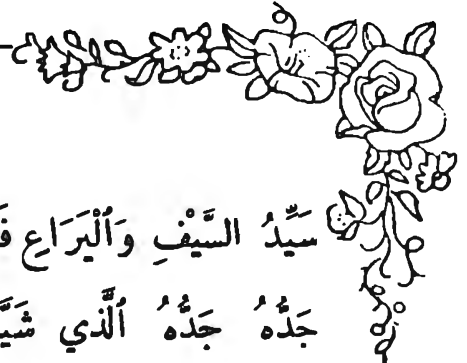 سَيِّدُ السَّيْفِ وَٱلْيَرَاعِ
جَدُّهُ جَدُّهُ ٱلَّذِي